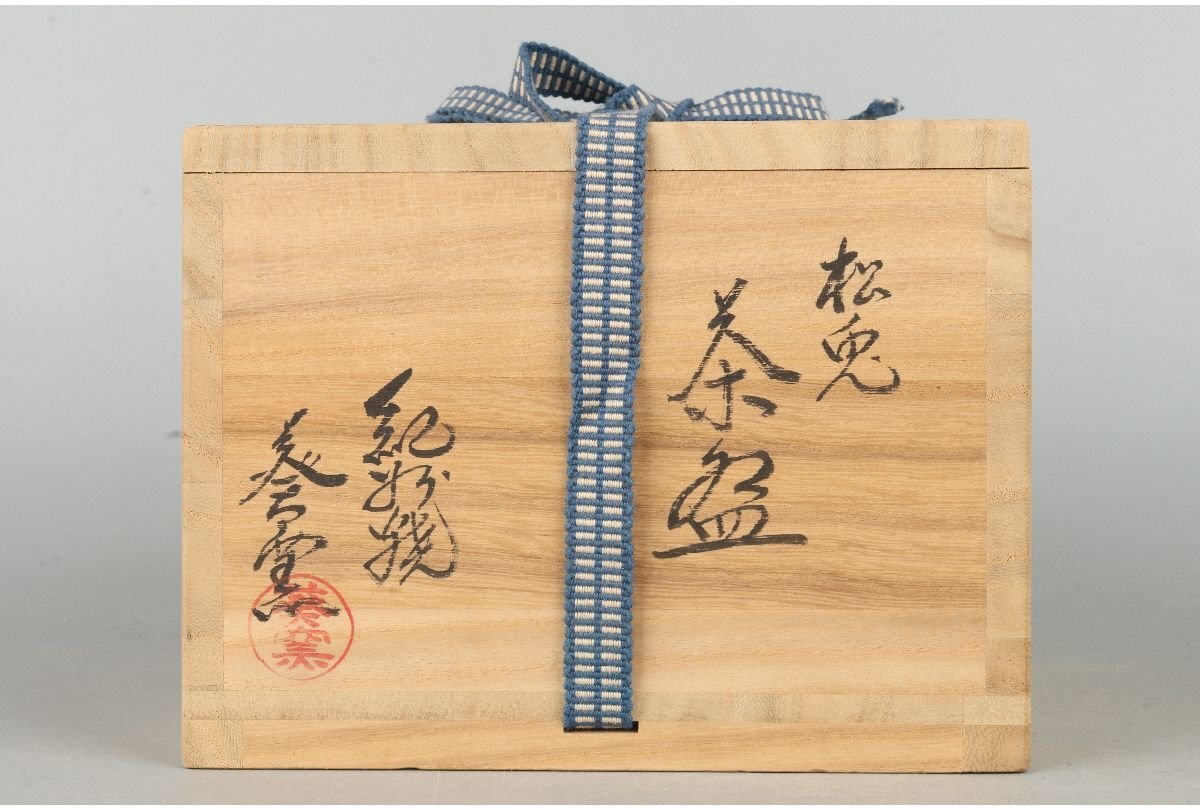 松兎
茶盌
紀州焼
葵窯
葵窯